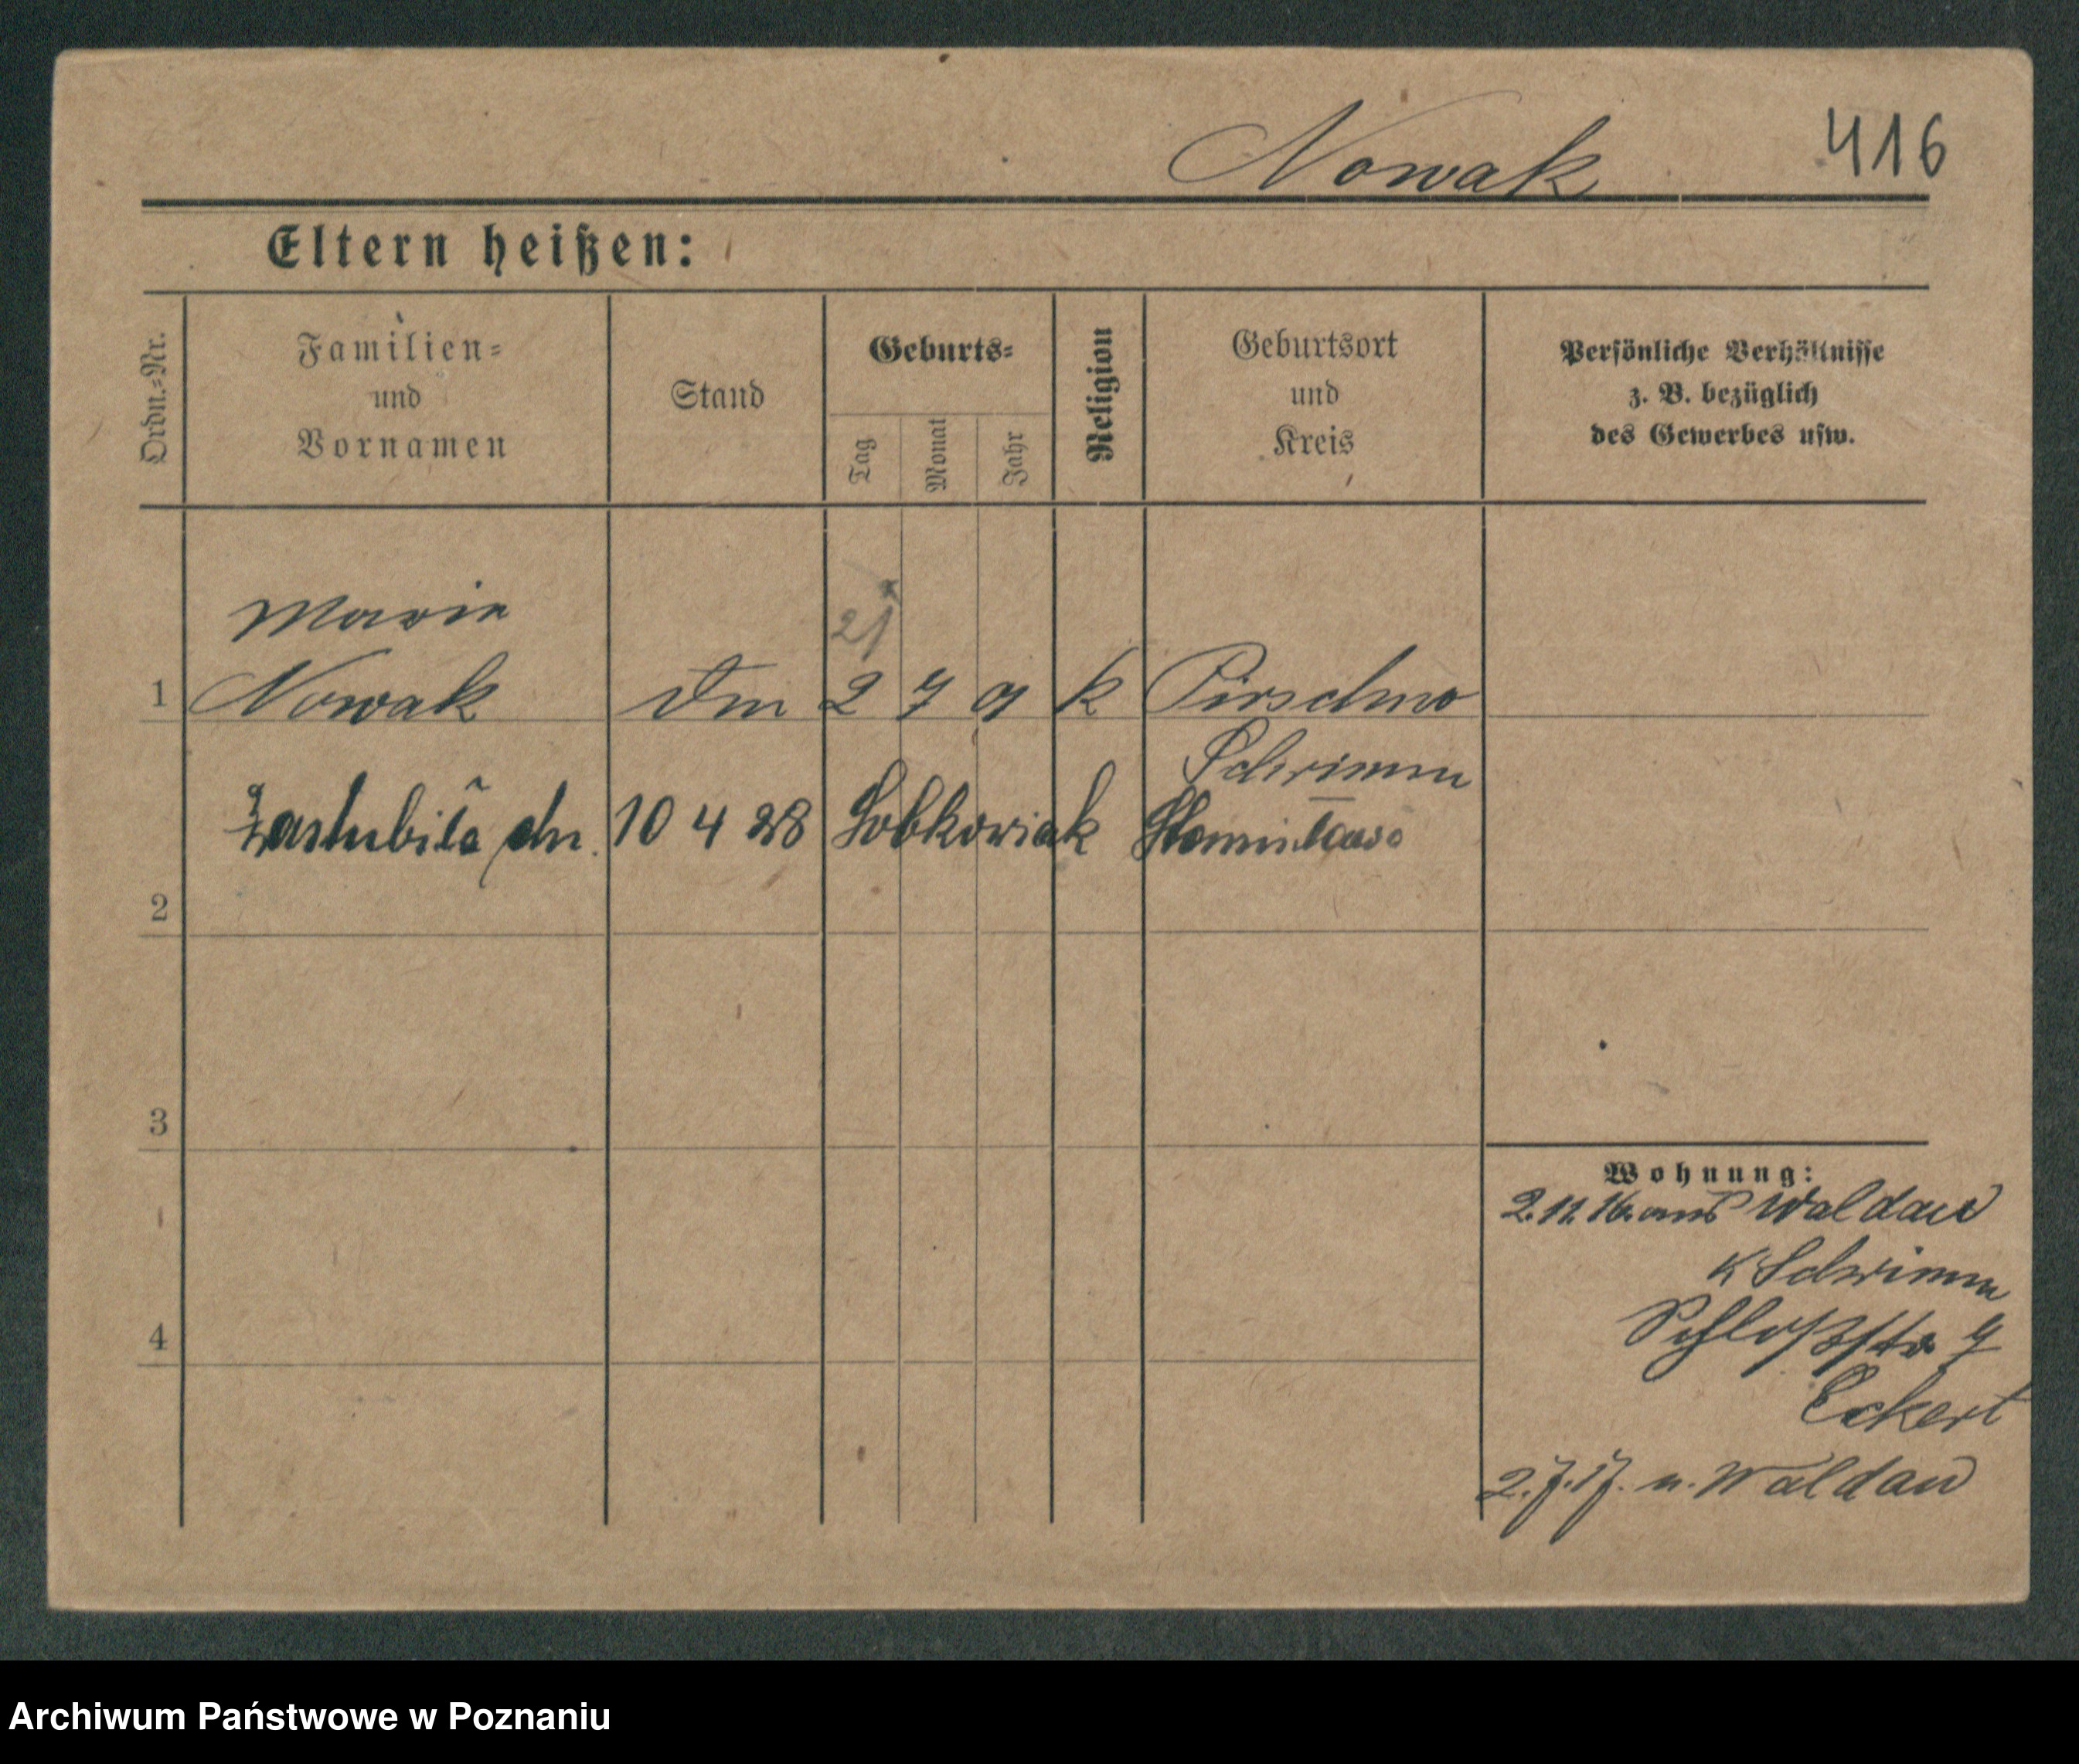 Nowak 416
Eltern heißen:
Ordn.=Nr.
Familien=
und
Vornamen
Stand
Geburts=
Tag
Monat
Jahr
Religion
Geburtsort
und
Kreis
Persönliche Verhältnisse
z. B. bezüglich
des Gewerbes usw.
Marie
21
1 Nowak 2 7 9 k
Schrimm
Zaslubiła dn. 10 4 28 Sobkowiak
2
3
4
Wohnung:
2.11.16. aus Waldau
K Schrimm
Schloßstr 9
Eckert
2.7.17. n. Waldau
Archiwum Państwowe w Poznaniu